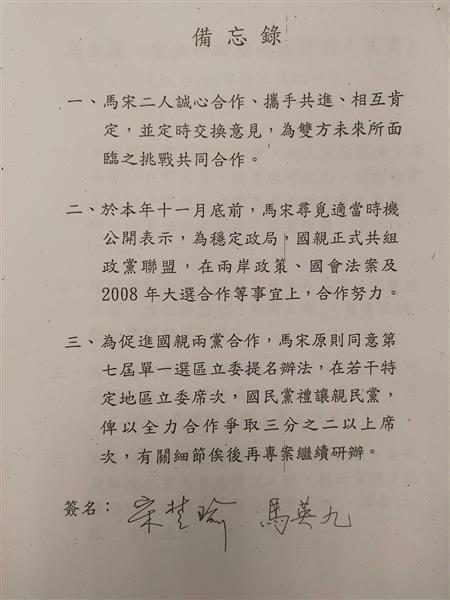 備忘錄
一、馬宋二人誠心合作、攜手共進、相互肯
定，並定時交換意見，為雙方未來所面
臨之挑戰共同合作。
二、於本年十一月底前，馬宋尋覓適當時機
公開表示，為穩定政局，國親正式共組
政黨聯盟，在兩岸政策、國會法案及
2008 年大選合作等事宜上，合作努力。
三、為促進國親兩黨合作，馬宋原則同意第
七屆單一選區立委提名辦法，在若干特
定地區立委席次，國民黨禮讓親民黨，
俾以全力合作爭取三分之二以上席
次，有關細節俟後再專案繼續研辦。
簽名： 宋楚瑜 馬英九